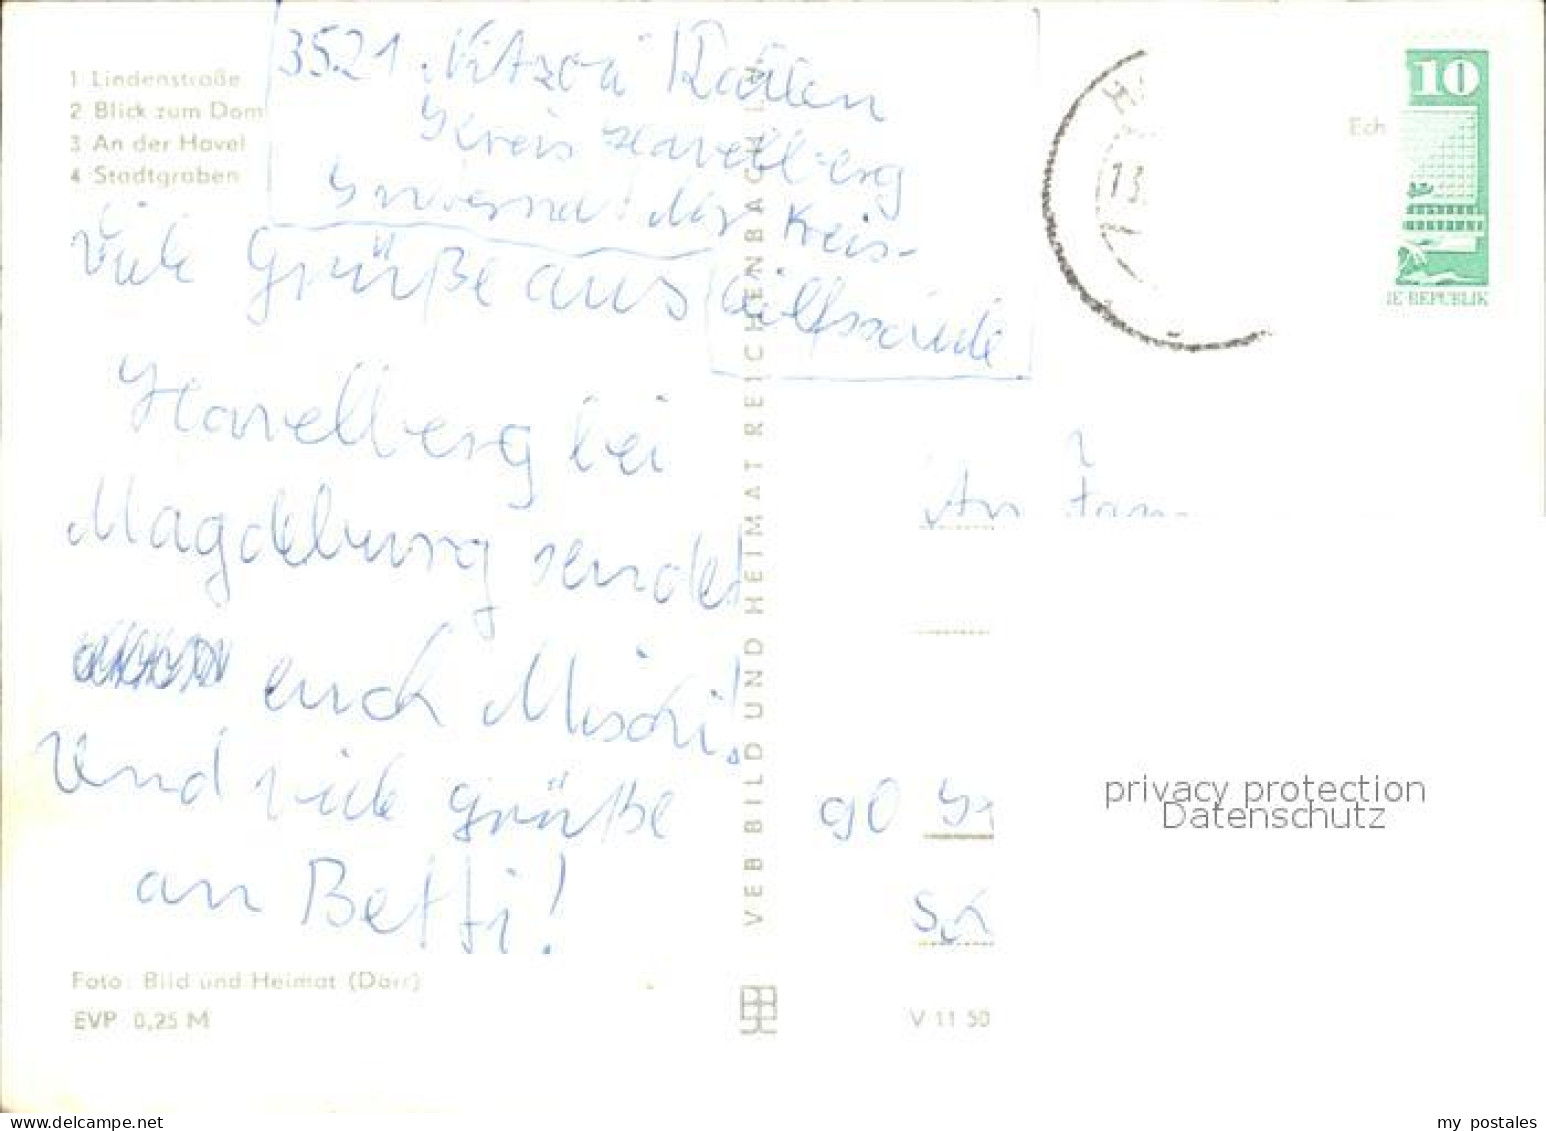 1 Lindenstraße
2 Blick zum Dom
3 An der Havel
4 Stadtgraben
3521
Kreis Havelberg
Kreis-
Viele Grüße aus
Havelberg bei
Magdeburg sendet
euch Mischi!
Und viele Grüße
an Betti!
Foto: Bild und Heimat (Dörr)
EVP 0,25 M
VEB BILD UND HEIMAT REICHENBACH
Ech
10
IE REPUBLIK
13.
An Fam
90
Sch
V 11 50
privacy protection
Datenschutz
my postales